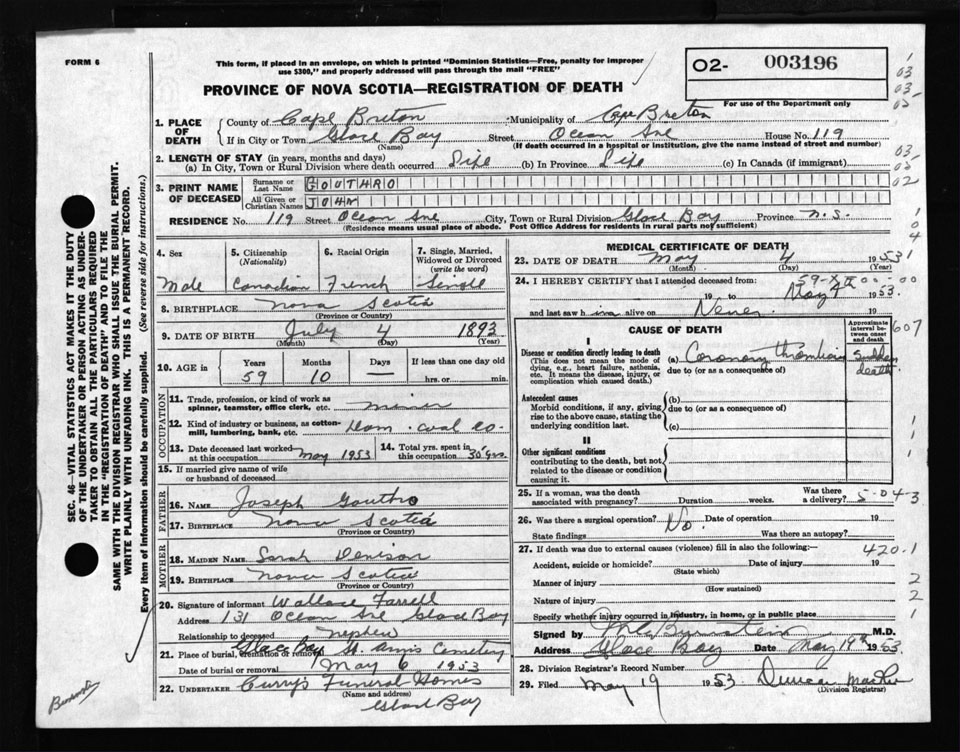 FORM 6
This form, if placed in an envelope, on which is printed "Dominion Statistics—Free, penalty for improper
use $300," and properly addressed will pass through the mail "FREE"
O2- 003196
PROVINCE OF NOVA SCOTIA—REGISTRATION OF DEATH
For use of the Department only
1. PLACE OF DEATH
County of Cape Breton Municipality of Cape Breton
If in City or Town Glace Bay Street Ocean Ave House No. 119
(Name) (If death occurred in a hospital or institution, give the name instead of street and number)
2. LENGTH OF STAY (in years, months and days)
(a) In City, Town or Rural Division where death occurred Life (b) In Province Life (c) In Canada (if immigrant)
3. PRINT NAME OF DECEASED
Surname or Last Name GOUTHRO
All Given or Christian Names JOHN
RESIDENCE No. 119 Street Ocean Ave City, Town or Rural Division Glace Bay Province N.S.
(Residence means usual place of abode. Post Office Address for residents in rural parts not sufficient)
4. Sex
Male
5. Citizenship (Nationality)
Canadian
6. Racial Origin
French
7. Single, Married, Widowed or Divorced (write the word)
Single
8. BIRTHPLACE Nova Scotia
(Province or Country)
9. DATE OF BIRTH July 4 1893
(Month) (Day) (Year)
10. AGE in
Years Months Days If less than one day old
59 10 — hrs. or min.
OCCUPATION
11. Trade, profession, or kind of work as
spinner, teamster, office clerk, etc. miner
12. Kind of industry or business, as cotton-
mill, lumbering, bank, etc. Dom. coal co.
13. Date deceased last worked at this occupation May 1953
14. Total yrs. spent in this occupation 30 yrs.
15. If married give name of wife
or husband of deceased
FATHER
16. NAME Joseph Gouthro
17. BIRTHPLACE Nova Scotia
(Province or Country)
MOTHER
18. MAIDEN NAME Sarah Denison
19. BIRTHPLACE Nova Scotia
(Province or Country)
20. Signature of informant Wallace Farrell
Address 131 Ocean Ave Glace Bay
Relationship to deceased nephew
21. Place of burial, cremation or removal Glace Bay St. Anns Cemetery
Date of burial or removal May 6 1953
22. UNDERTAKER Currys Funeral Homes
(Name and address)
Glace Bay
MEDICAL CERTIFICATE OF DEATH
23. DATE OF DEATH May 4 1953
(Month) (Day) (Year)
24. I HEREBY CERTIFY that I attended deceased from:
19 to May 4 1953.
and last saw him alive on Never
CAUSE OF DEATH
Approximate interval between onset and death
I
Disease or condition directly leading to death
(This does not mean the mode of
dying, e.g., heart failure, asthenia,
etc. It means the disease, injury, or
complication which caused death.)
(a) Coronary thrombosis Sudden death
due to (or as a consequence of)
Antecedent causes
Morbid conditions, if any, giving
rise to the above cause, stating the
underlying condition last.
(b)
due to (or as a consequence of)
(c)
II
Other significant conditions
contributing to the death, but not
related to the disease or condition
causing it.
25. If a woman, was the death
associated with pregnancy? Duration weeks. Was there a delivery?
5-043
26. Was there a surgical operation? No. Date of operation 19
State findings Was there an autopsy?
27. If death was due to external causes (violence) fill in also the following:—
420.1
Accident, suicide or homicide? Date of injury 19
(State which)
Manner of injury
(How sustained)
Nature of injury
Specify whether injury occurred in industry, in home, or in public place
Signed by M.D.
Address Glace Bay Date May 19th 1953.
28. Division Registrar's Record Number
29. Filed May 19 1953
(Division Registrar)
607
SEC. 46—VITAL STATISTICS ACT MAKES IT THE DUTY
OF THE UNDERTAKER OR PERSON ACTING AS UNDER-
TAKER TO OBTAIN ALL THE PARTICULARS REQUIRED
IN THE "REGISTRATION OF DEATH" AND TO FILE THE
SAME WITH THE DIVISION REGISTRAR WHO SHALL ISSUE THE BURIAL PERMIT.
WRITE PLAINLY WITH UNFADING INK. THIS IS A PERMANENT RECORD.
Every item of Information should be carefully supplied. (See reverse side for instructions.)